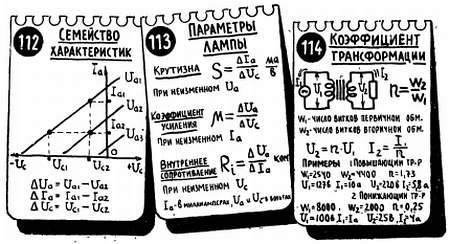 112
СЕМЕЙСТВО
ХАРАКТЕРИСТИК
Ia
Ua1
Ia1
Ua2
Ia2
Ua3
-Uc Uc1 Uc2 0
ΔUa = Ua1 - Ua2
ΔIa = Ia1 - Ia2
ΔUc = Uc1 - Uc2
113
ПАРАМЕТРЫ
ЛАМПЫ
КРУТИЗНА S = ΔIa/ΔUc ма/в
ПРИ НЕИЗМЕННОМ Ua
КОЭФФИЦИЕНТ
УСИЛЕНИЯ M = ΔUa/ΔUc
ПРИ НЕИЗМЕННОМ Ia
ВНУТРЕННЕЕ
СОПРОТИВЛЕНИЕ Ri = ΔUa/ΔIa ком
ПРИ НЕИЗМЕННОМ Uc
Ia - В МИЛЛИАМПЕРАХ, Ua И Uc В ВОЛЬТАХ
114
КОЭФФИЦИЕНТ
ТРАНСФОРМАЦИИ
I1 U1 U2 I2
n = w2/w1
W1 - ЧИСЛО ВИТКОВ ПЕРВИЧНОЙ ОБМ.
W2 - ЧИСЛО ВИТКОВ ВТОРИЧНОЙ ОБМ.
U2 = n·U1 I2 = I1/n
ПРИМЕРЫ 1 ПОВЫШАЮЩИЙ ТР-Р
W1=2540 W2=4400 n=1,73
U1=127в I1=10а U2=220в I2=5,8а
2 ПОНИЖАЮЩИЙ ТР-Р
W1=8000, W2=2000 n=0,25
U1=100в I1=1а U2=25в I2=4а